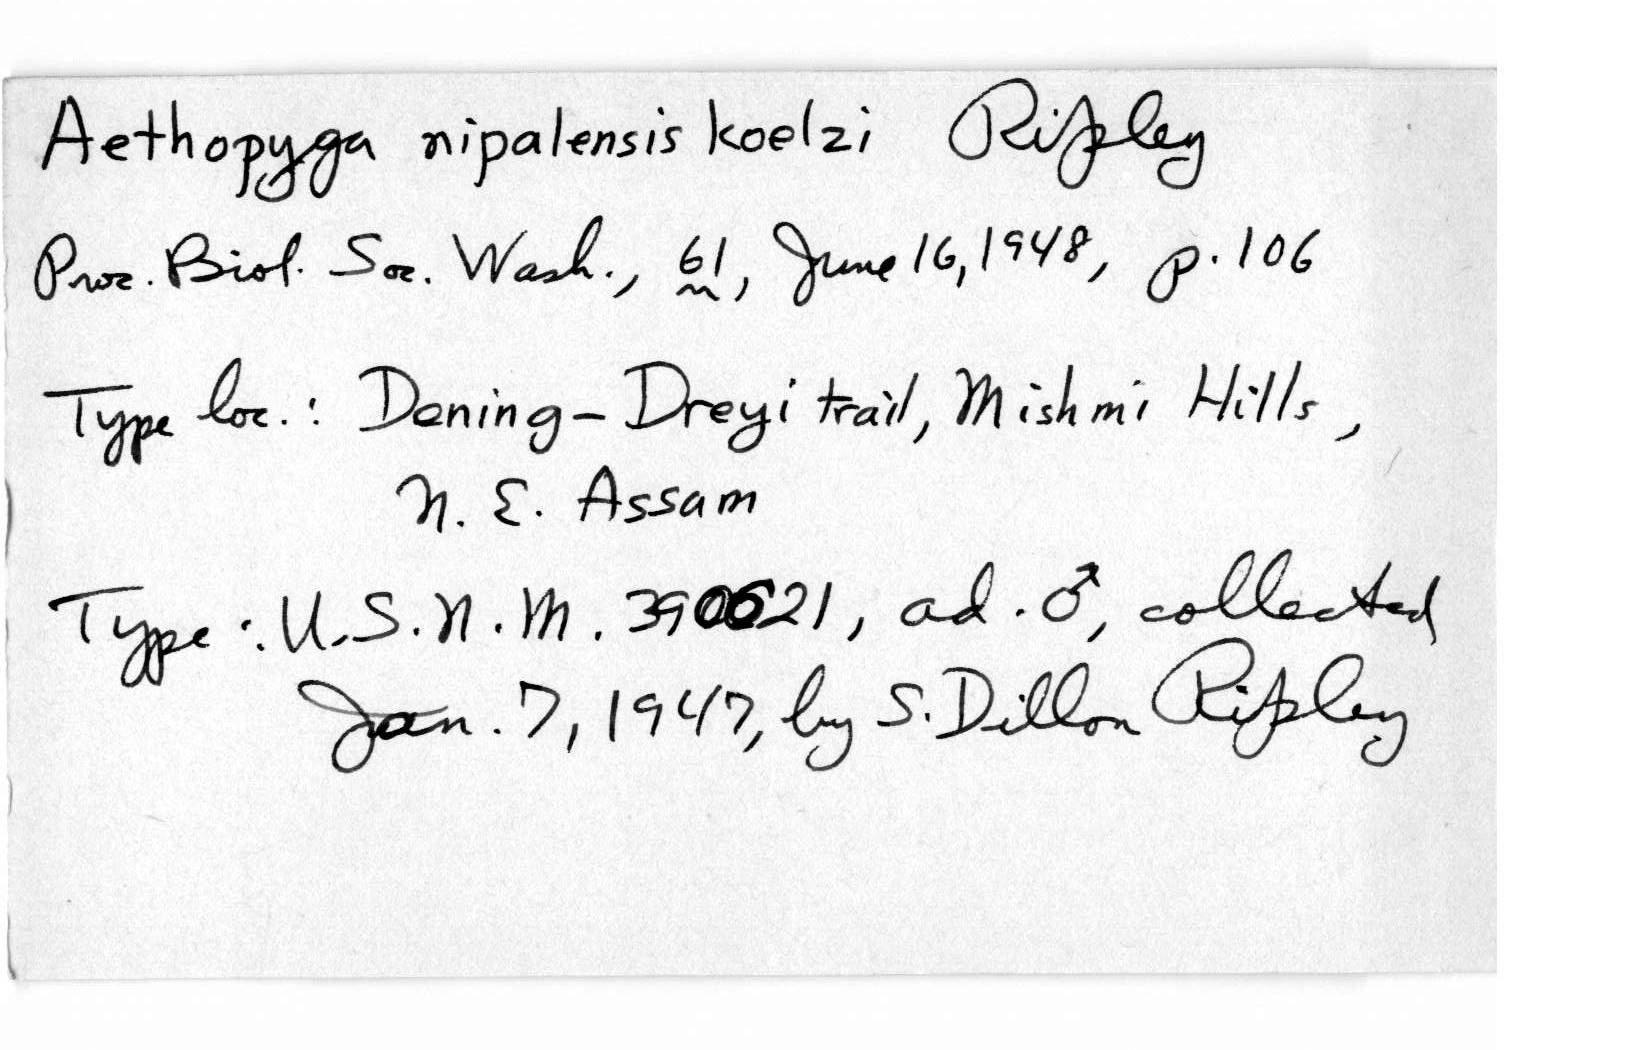 Aethopyga nipalensis koelzi Ripley
Proc. Biol. Soc. Wash., 61, June 16, 1948, p. 106
Type loc.: Dening-Dreyi trail, Mishmi Hills,
N. E. Assam
Type: U.S.N.M. 390621, ad. ♂, collected
Jan. 7, 1947, by S. Dillon Ripley